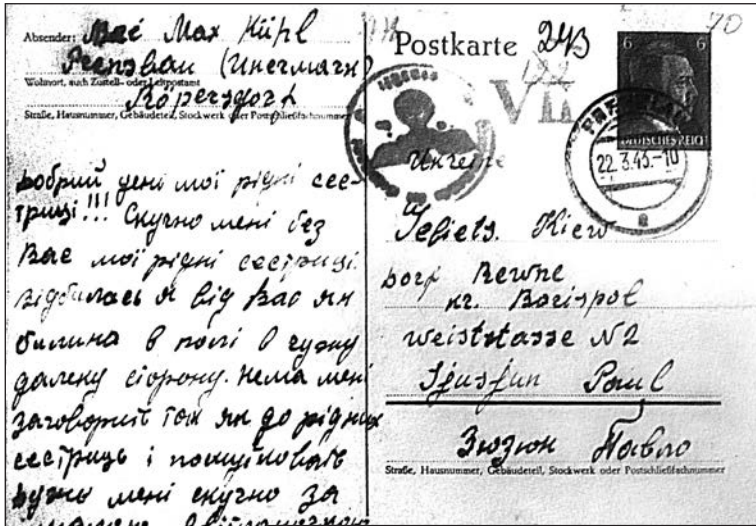 70
Absender: Max Kühl
Wohnort, auch Zustell- oder Leitpostamt
Röpersdorf
Straße, Hausnummer, Gebäudeteil, Stockwerk oder Postschließfachnummer
добрий день мої рідні сес-
триці!!! Скучно мені без
Вас мої рідні сестриці.
Відбилась я від Вас як
билина в полі в чужу
далеку сторону. нема мені
заговорить так як до рідних
сестриць і
дуже мені скучно за
Postkarte
6 6
DEUTSCHES REICH
22.3.43.-10
a
Ukreine
Gebiets. Kiew
dorf Rewne
kr. Borispol
weiststasse N2
Sjusjun Paul
Зюзюн Павло
Straße, Hausnummer, Gebäudeteil, Stockwerk oder Postschließfachnummer